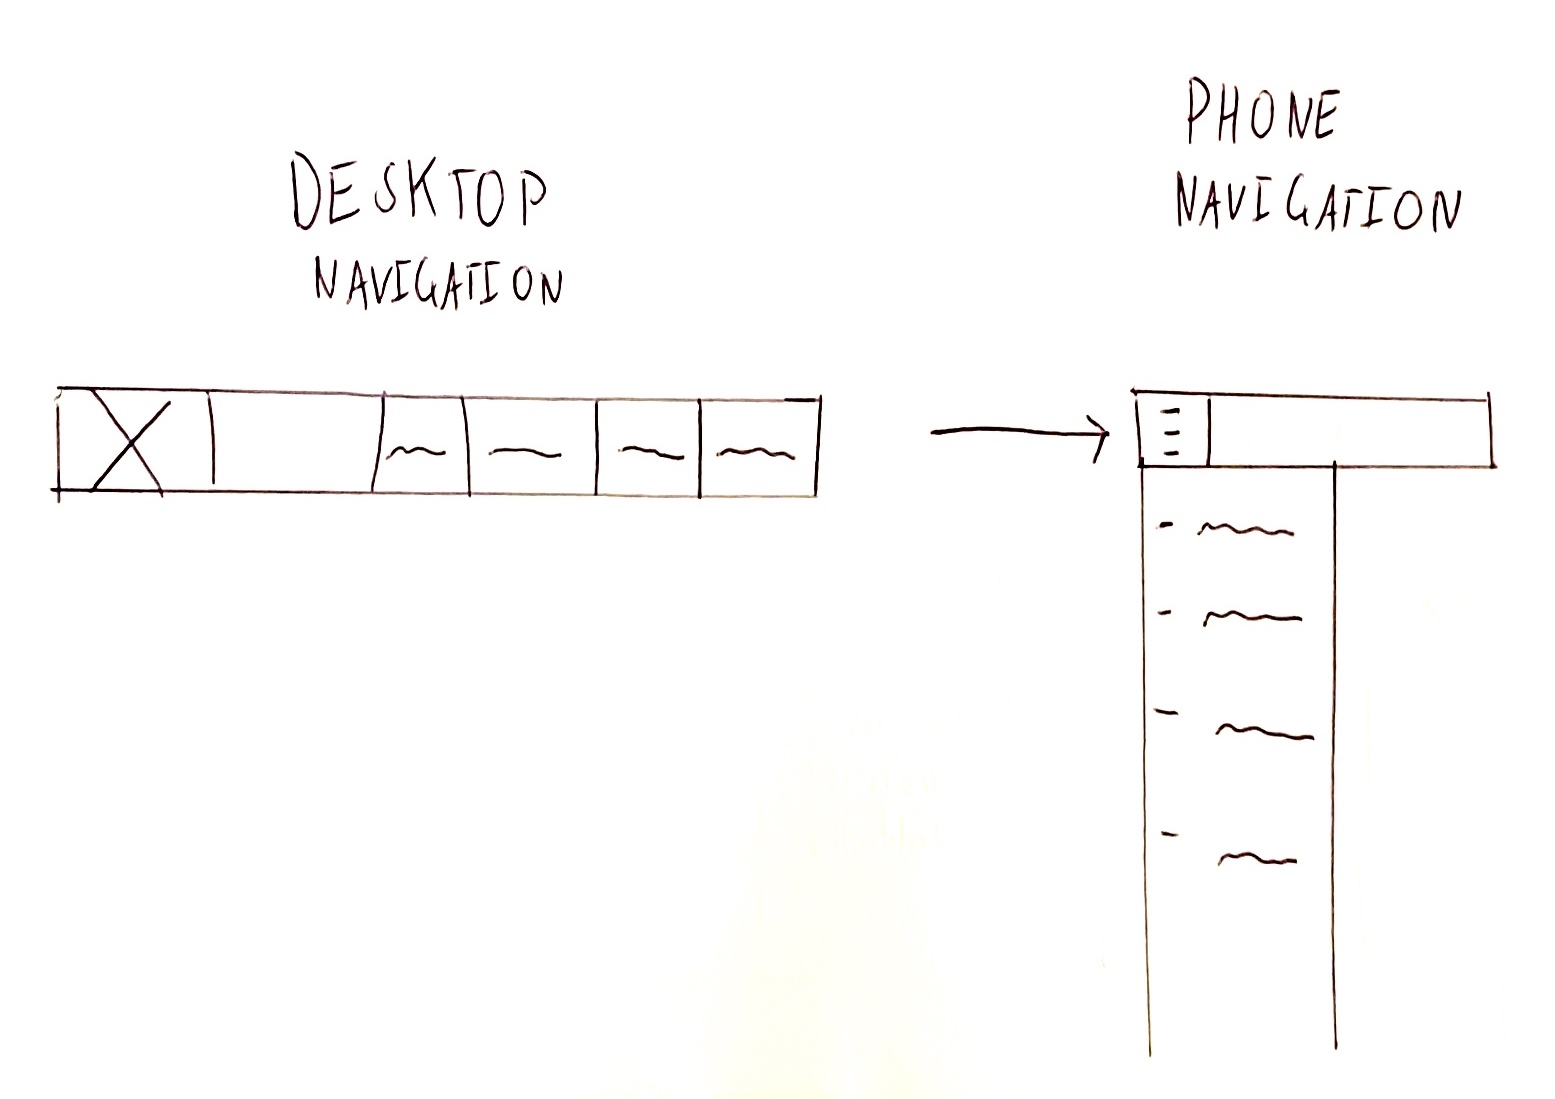 DESKTOP
NAVIGATION
PHONE
NAVIGATION